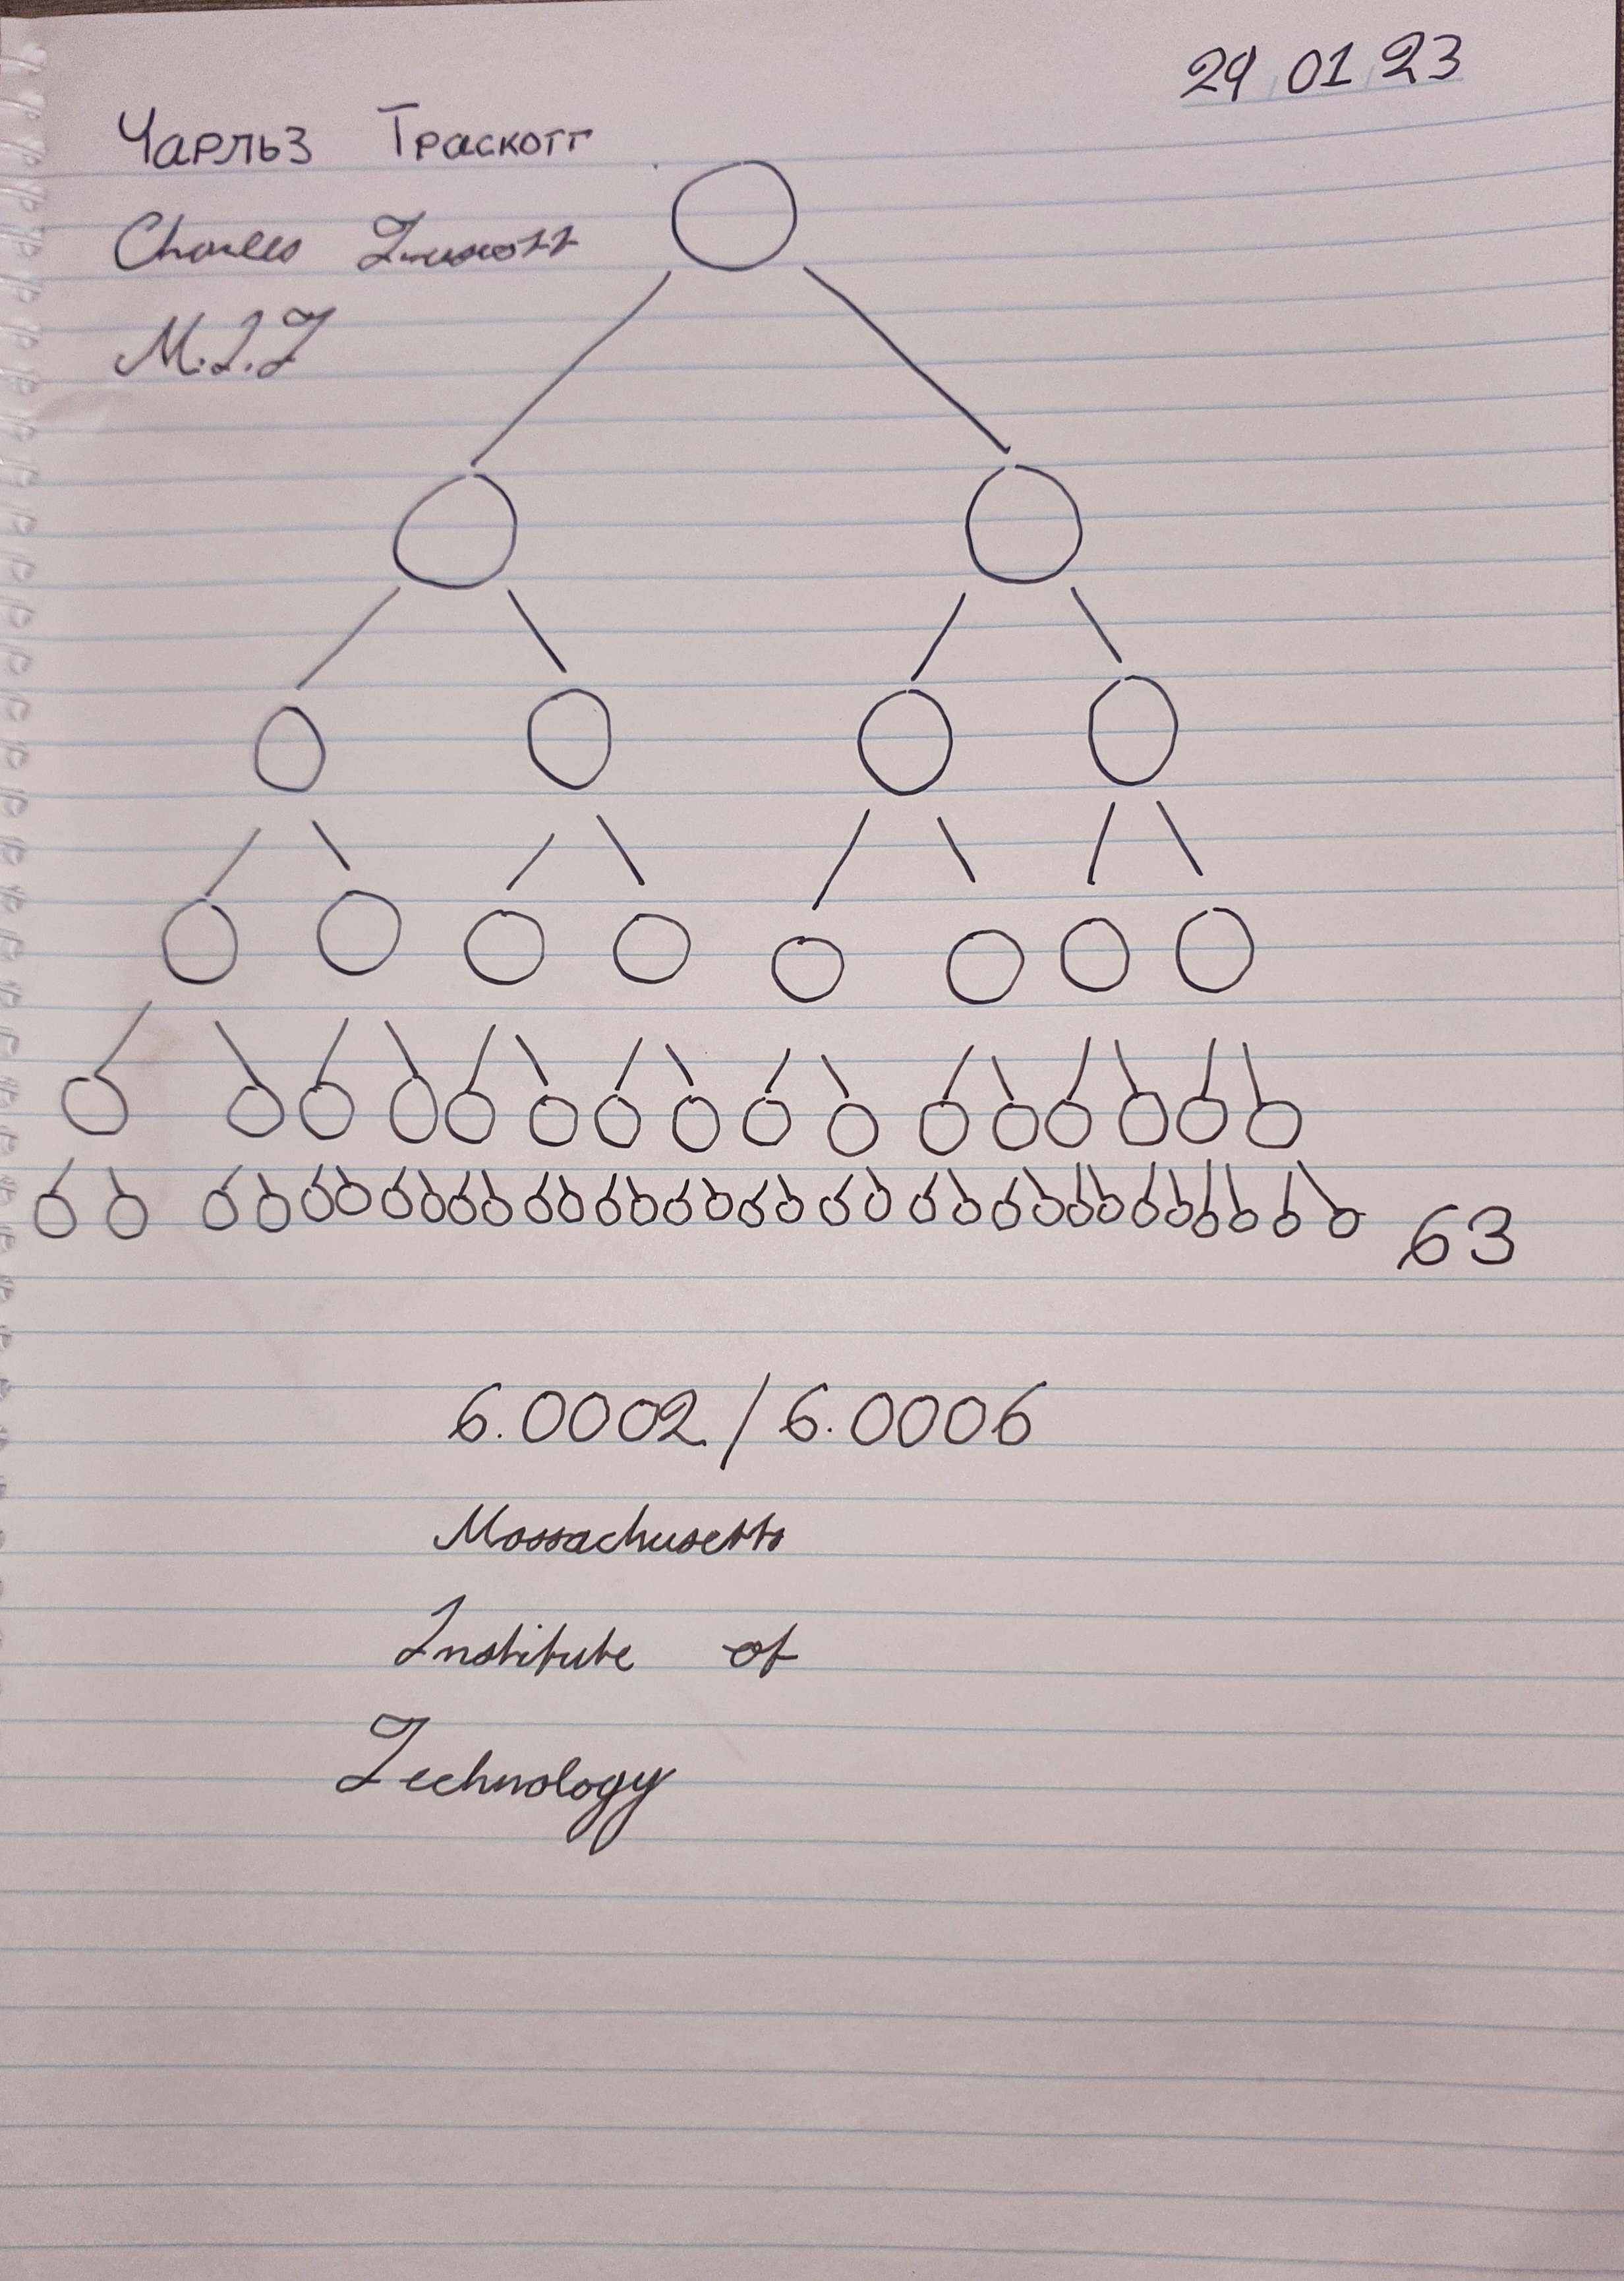 29 01 23
Чарльз Траскотт
Charles Truscott
M.I.T
63
6.0002/6.0006
Massachusetts
Institute of
Technology